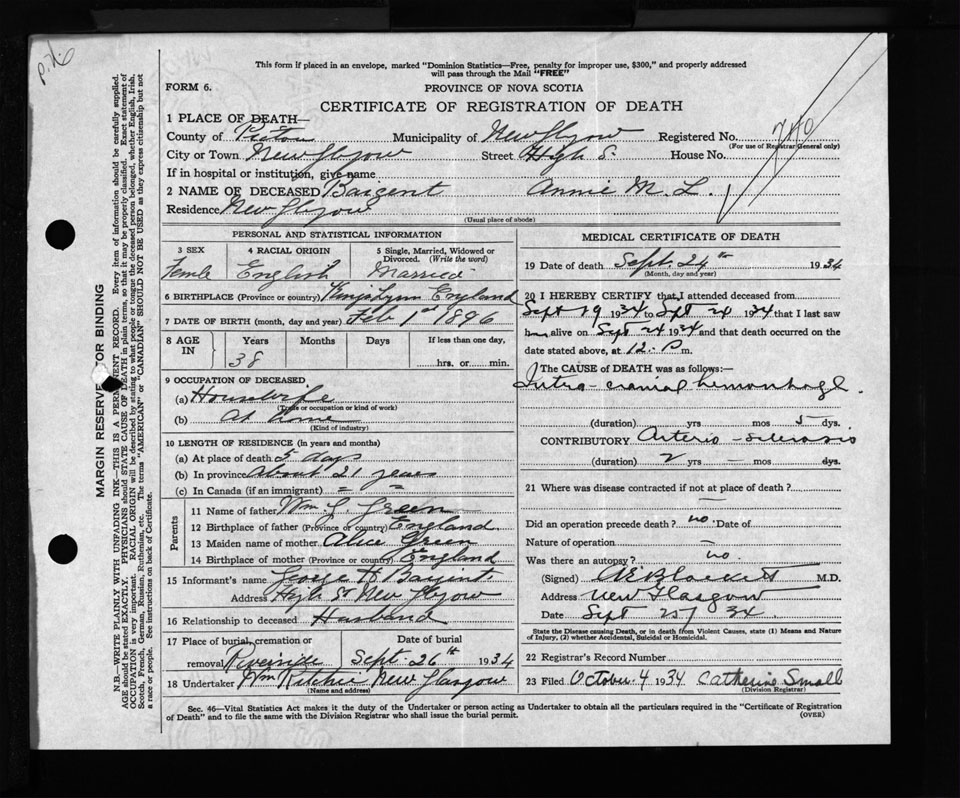 p.76
This form if placed in an envelope, marked "Dominion Statistics—Free, penalty for improper use, $300," and properly addressed
will pass through the Mail "FREE"
FORM 6.
PROVINCE OF NOVA SCOTIA
CERTIFICATE OF REGISTRATION OF DEATH
1 PLACE OF DEATH—
County of Pictou Municipality of New Glasgow Registered No. 740
(For use of Registrar General only)
City or Town New Glasgow Street High St. House No.
If in hospital or institution, give name
2 NAME OF DECEASED Bargent Annie M. L.
Residence New Glasgow
(Usual place of abode)
PERSONAL AND STATISTICAL INFORMATION
3 SEX 4 RACIAL ORIGIN 5 Single, Married, Widowed or Divorced. (Write the word)
Femle English Married
6 BIRTHPLACE (Province or country) Kings Lynn England
7 DATE OF BIRTH (month, day and year) Feb 1st 1896
8 AGE IN Years Months Days If less than one day,
38 hrs. or min.
9 OCCUPATION OF DECEASED
(a) Housewife
(Trade or occupation or kind of work)
(b) At Home
(Kind of industry)
10 LENGTH OF RESIDENCE (in years and months)
(a) At place of death 5 days
(b) In province About 21 years
(c) In Canada (if an immigrant) = =
Parents
11 Name of father Wm. G. Green
12 Birthplace of father (Province or country) England
13 Maiden name of mother Alice Green
14 Birthplace of mother (Province or country) England
15 Informant's name George H Bargent
Address High St New Glasgow
16 Relationship to deceased Husband
17 Place of burial, cremation or removal Riverside
Date of burial Sept. 26th 1934
18 Undertaker Wm Ritchie New Glasgow
(Name and address)
MEDICAL CERTIFICATE OF DEATH
19 Date of death Sept. 24th 1934
(Month, day and year)
20 I HEREBY CERTIFY that I attended deceased from
Sept 19 1934 to Sept 24 1934 that I last saw
her alive on Sept 24 1934 and that death occurred on the
date stated above, at 12. P m.
The CAUSE OF DEATH was as follows:—
Intra-cranial hemorrhage
(duration) yrs mos 5 dys.
CONTRIBUTORY Arterio-sclerosis
(duration) 2 yrs — mos — dys.
21 Where was disease contracted if not at place of death?
—
Did an operation precede death? no. Date of
Nature of operation —
Was there an autopsy? no
(Signed) M.D.
Address New Glasgow
Date Sept 25/34
State the Disease causing Death, or in death from Violent Causes, state (1) Means and Nature
of Injury, (2) whether Accidental, Suicidal or Homicidal.
22 Registrar's Record Number
23 Filed October 4 1934 Catherine Small
(Division Registrar)
Sec. 46—Vital Statistics Act makes it the duty of the Undertaker or person acting as Undertaker to obtain all the particulars required in the "Certificate of Registration
of Death" and to file the same with the Division Registrar who shall issue the burial permit.
(OVER)
MARGIN RESERVED FOR BINDING
N.B.—WRITE PLAINLY WITH UNFADING INK—THIS IS A PERMANENT RECORD. Every item of information should be carefully supplied.
AGE should be stated EXACTLY. PHYSICIANS should STATE CAUSE OF DEATH in plain terms, so that it may be properly classified. Exact statement of
OCCUPATION is very important. RACIAL ORIGIN will be described by stating to what people or tongue the deceased person belonged, whether English, Irish,
Scotch, French, German, Russian, Ruthenian, etc. The terms "AMERICAN" or CANADIAN" SHOULD NOT BE USED as they express citizenship but not
a race or people. See instructions on back of Certificate.